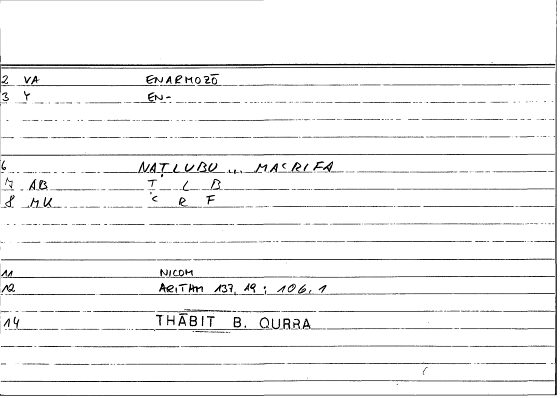 2 VA ENARMOZŌ
3 Y EN-
6 NAṬLUBU ... MAʿRIFA
7 AB Ṭ L B
8 MU ʿ R F
11 NICOM
12 ARITHM 137, 19 ; 106, 1
14 THĀBIT B. QURRA